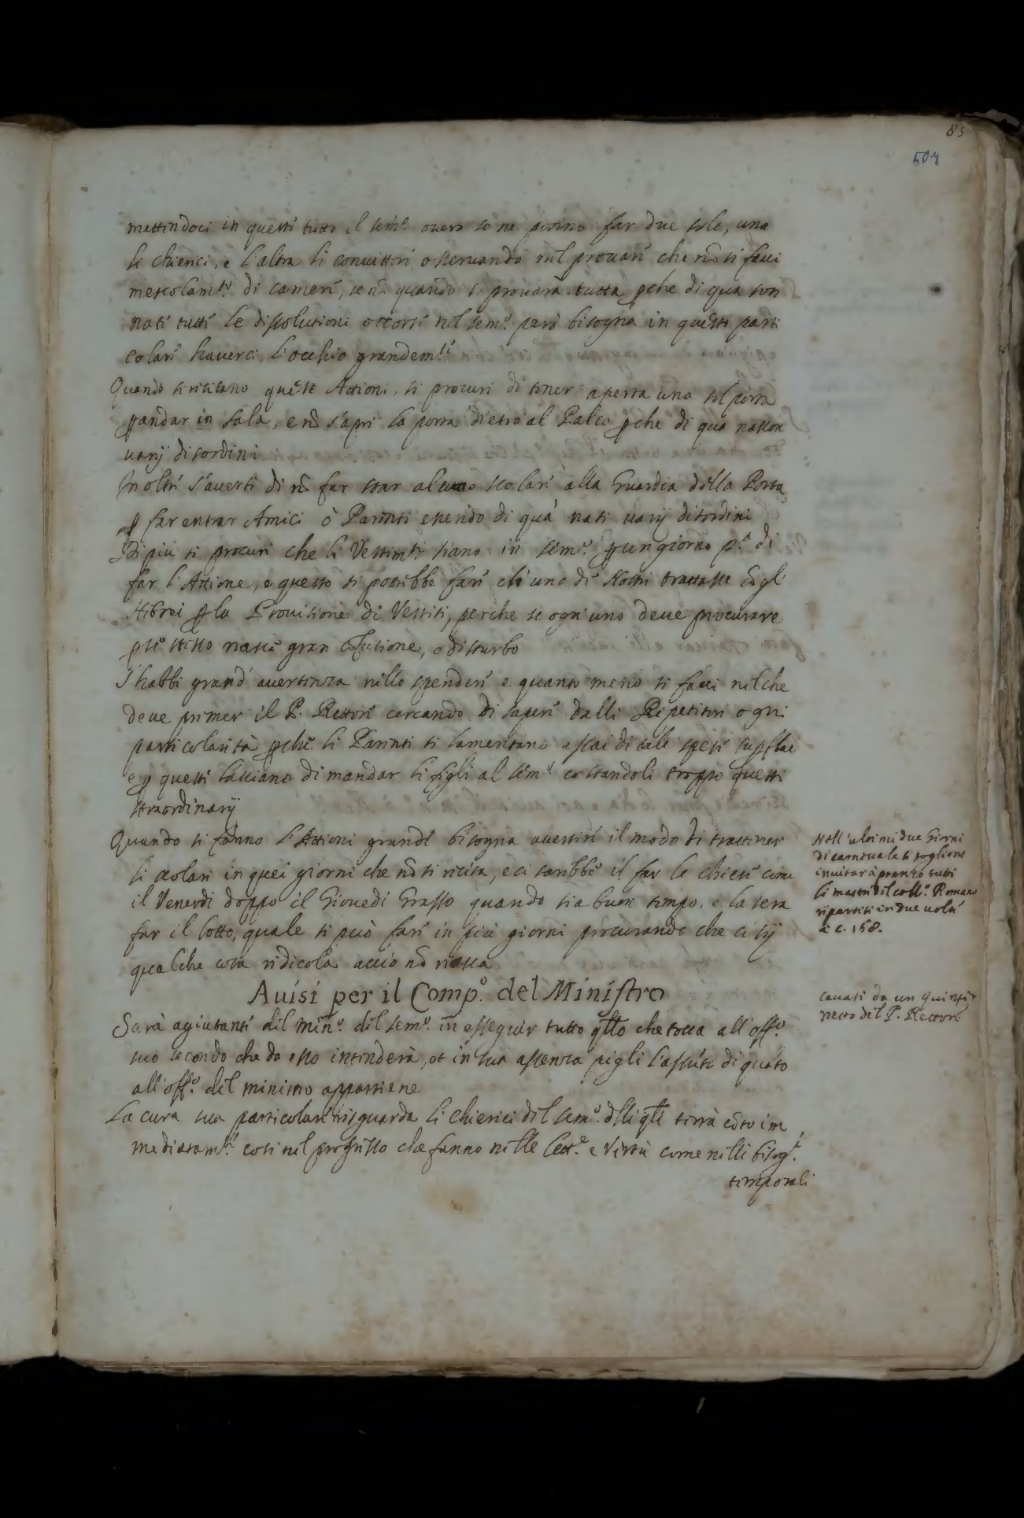 83
504
mettendoci in questi tutto il sem.º overo se ne potrino far due sole, una
le chierici, e l'altra li convittori, osservando nel provare che nō si facci
mescolam.to di camere, se nō quando si provarà tutta pche di quà son
nati tutte le dissolutioni occorse nel sem.º però bisogna in queste parti
colari haverci l'occhio grandem.te
Quando si recitano queste Attioni, si procuri di tener aperta una sol porta
p andar in sala, e nō s'apri la porta dietro al Palco pche di quà nascon
varij disordini
Inoltre s'averti di nō far star alcuno scolare alla Guardia della Porta
p far entrar Amici ò Parenti essendo di quà nati varij disordini
Di più si procuri che li Vestiti siano in sem.º p un giorno p.ª di
far l'Attione, e questo si potrebbe fare ch'uno di Nostri trattasse cō gl'
Hebrei p la Provisione di Vestiti, perche se ogn'uno deve procurare
p se stesso nasce gran cōfusione, e disturbo
S'habbi grand' avertenza nello spendere e quanto meno si facci nelche
deve premer il P. Rettore cercando di sapere dalli Repetitori ogni
particolarità pche li Parenti si lamentano assai di tale spese supflue
e p questi lasciano di mandar li figli al sem.º costandoli troppo questi
straordinarij
Quando si fanno l'Attioni grandi bisogna avertire il modo di trattener
li scolari in quei giorni che nō si recita, e ci sarebbe il far le chiese come
il Venerdi doppo il Giovedi Grasso quando sia buon tempo, e la sera
far il lotto, quale si può fare in più giorni procurando che ci sij
qualche cosa ridicola accio nō riesca
Nell'ultimi due Giorni
di carnevale si sogliono
invitar à pranzo tutti
li maestri del coll.º Romano
ripartiti in due volte
à c. 168.
Avisi per il Comp.º del Ministro
cavati da un Quinter
netto del P. Rettore
Sarà agiutante del Min.º del sem.º in esseguir tutto qllo che tocca all'off.º
suo secondo che da esso intenderà, et in sua assenza pigli l'assūto di quāto
all'off.º del ministro appartiene
La cura sua particolare risguarda li chierici del sem.º delli qli terrà cōto im
mediatam.te così nel progresso che fanno nelle lett.e e virtù come nelli bisog.i
temporali